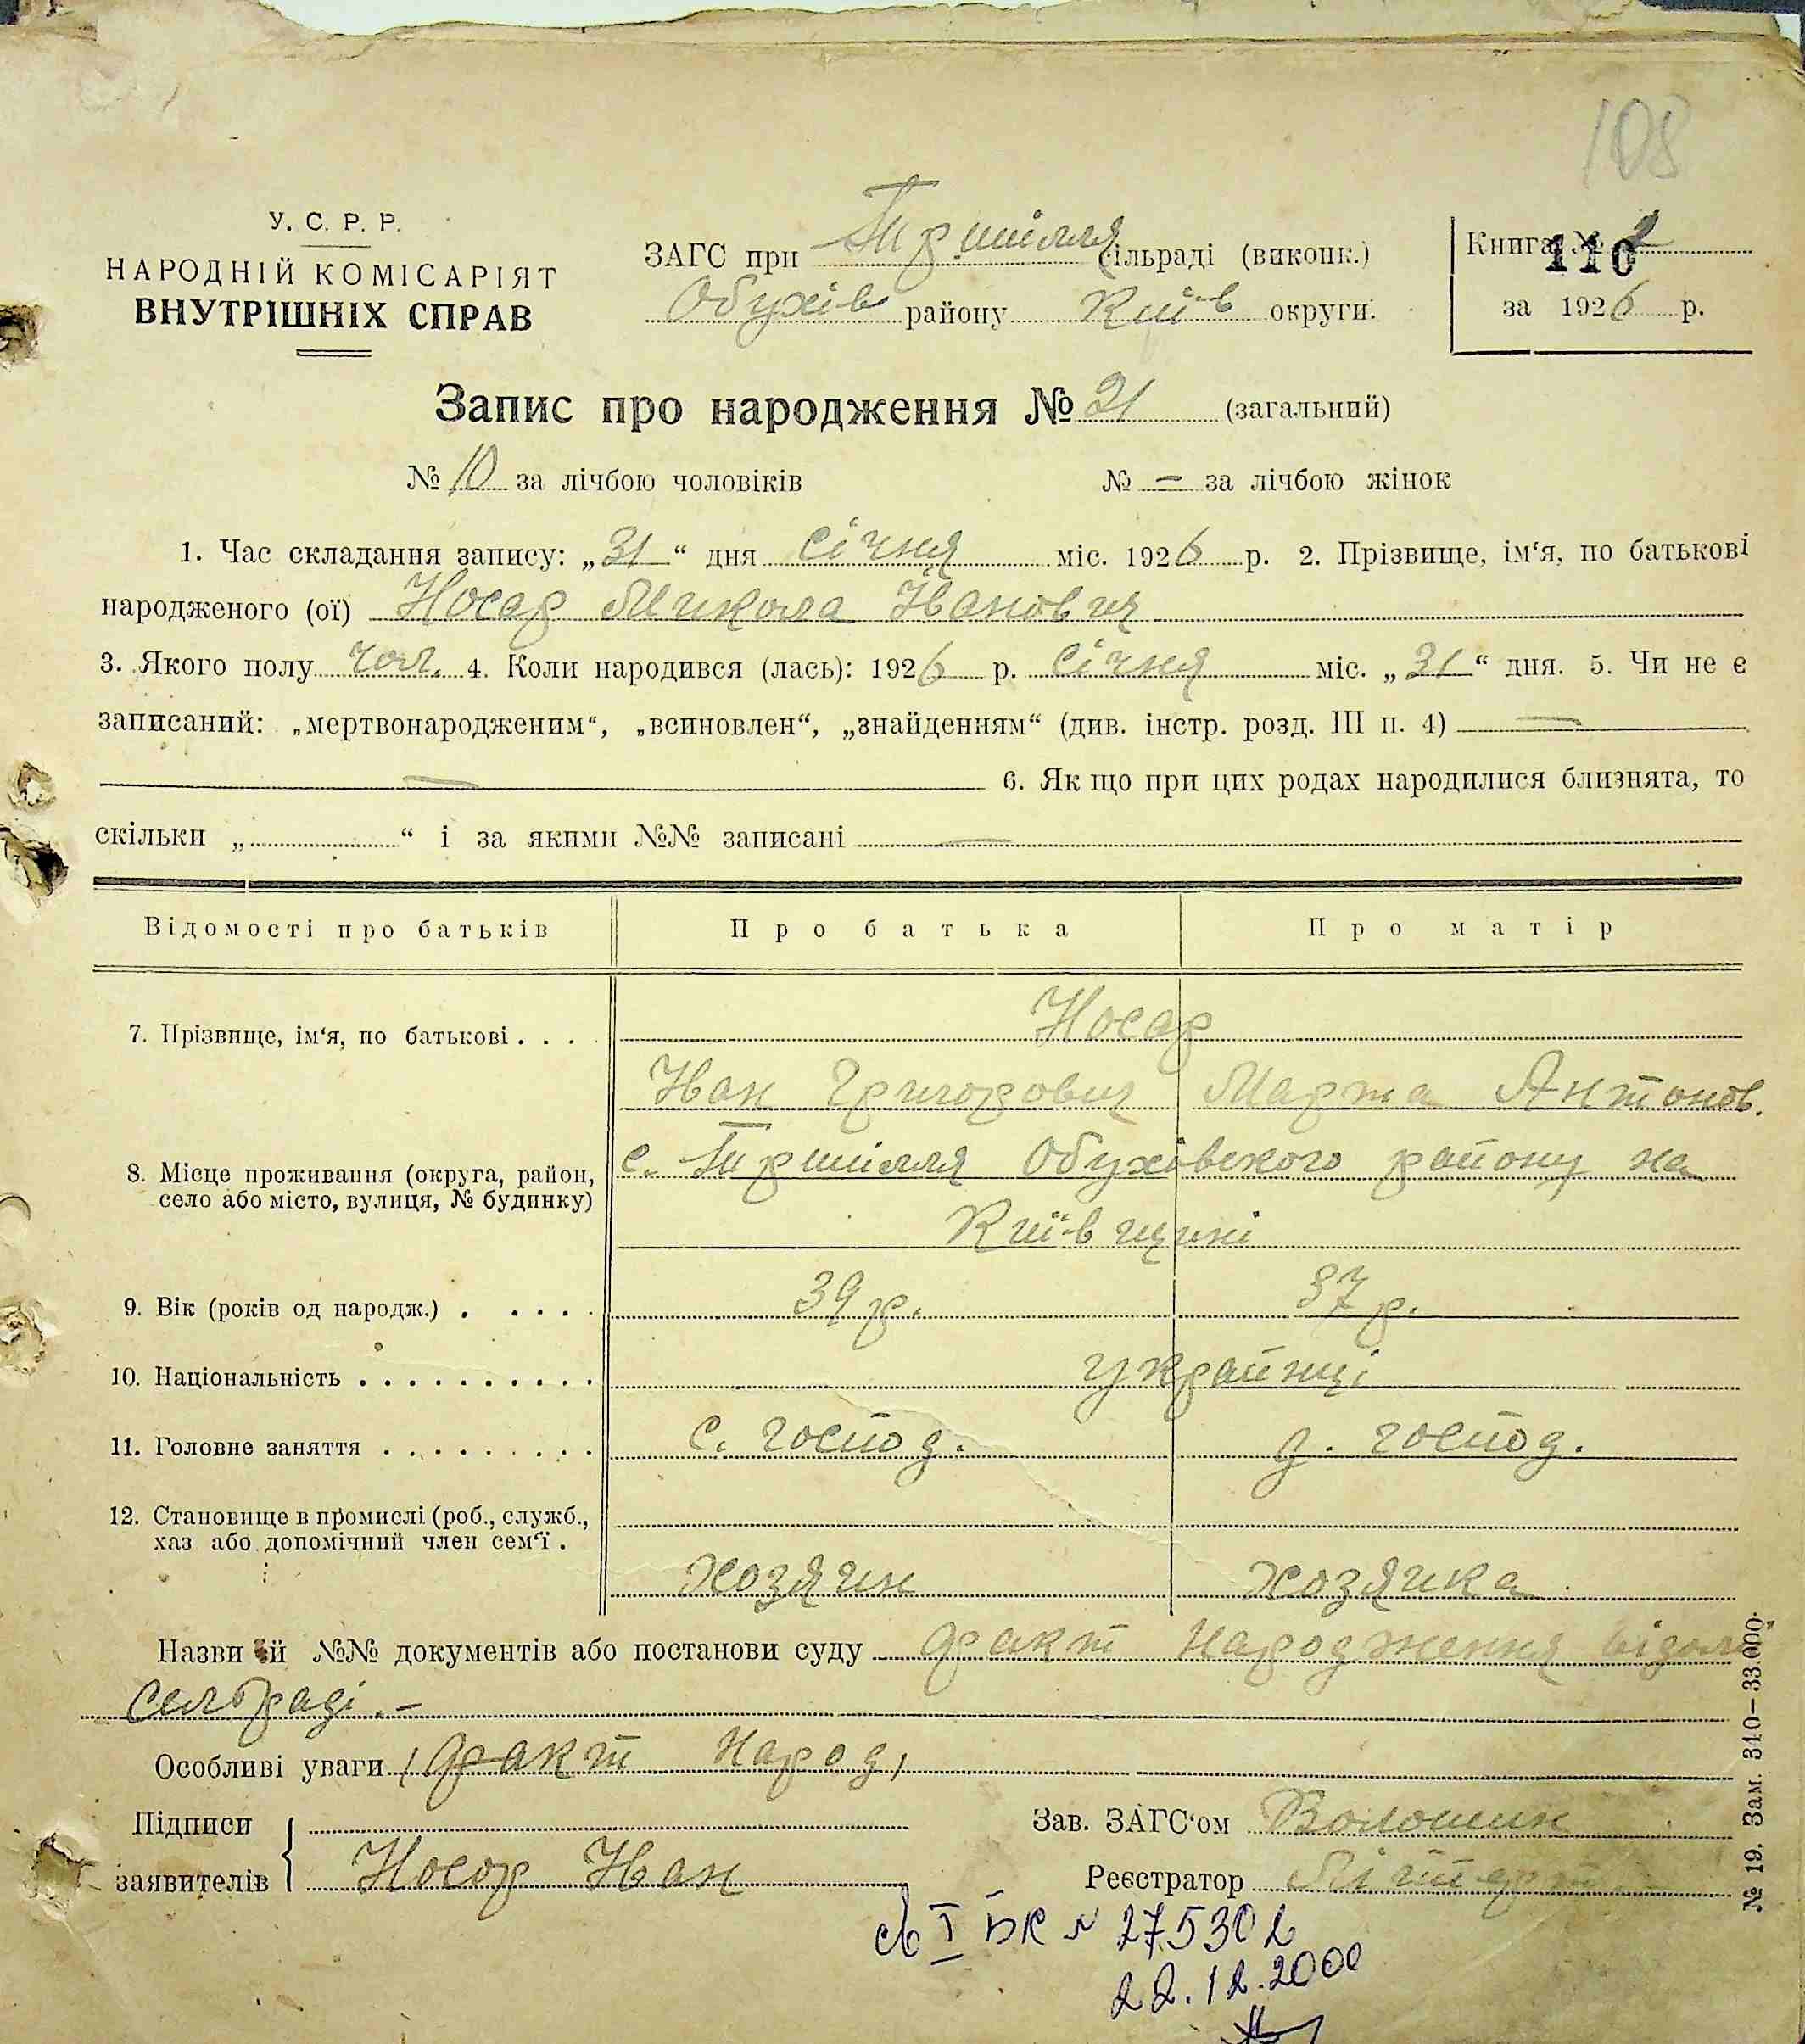 108
У. С. Р. Р.
НАРОДНІЙ КОМІСАРІЯТ
ВНУТРІШНІХ СПРАВ
ЗАГС при Трипілля сільраді (виконк.)
Обухів району Київ округи.
Книга № 2
110
за 1926 р.
Запис про народження № 21 (загальний)
№ 10 за лічбою чоловіків № — за лічбою жінок
1. Час складання запису: „31“ дня Січня міс. 1926 р. 2. Прізвище, ім‘я, по батькові
народженого (ої) Носар Микола Іванович
3. Якого полу чол. 4. Коли народився (лась): 1926 р. Січня міс. „31“ дня. 5. Чи не є
записаний: „мертвонародженим“, „всиновлен“, „знайденням“ (див. інстр. розд. III п. 4) —
— 6. Як що при цих родах народилися близнята, то
скільки „ “ і за якими №№ записані —
Відомості про батьків Про батька Про матір
7. Прізвище, ім‘я, по батькові . . . . Носар
Іван Григорович Марта Антонов.
8. Місце проживання (округа, район, с. Трипілля Обухівського району на
село або місто, вулиця, № будинку)
Київщині
9. Вік (років од народж.) . . . . . 39 р. 37 р.
10. Національність . . . . . . . . . . українці
11. Головне заняття . . . . . . . . . с. господ. д. господ.
12. Становище в промислі (роб., служб.,
хаз або допомічний член сем‘ї .
хозяин хозяйка
Назви й №№ документів або постанови суду факт народження відом
сельраді. –
Особливі уваги (факт народ)
Підписи
заявителів Носар Іван
Зав. ЗАГС‘ом Волошин
Реєстратор
№ 19. Зам. 310—33.000.
св I БК № 275302
22.12.2000